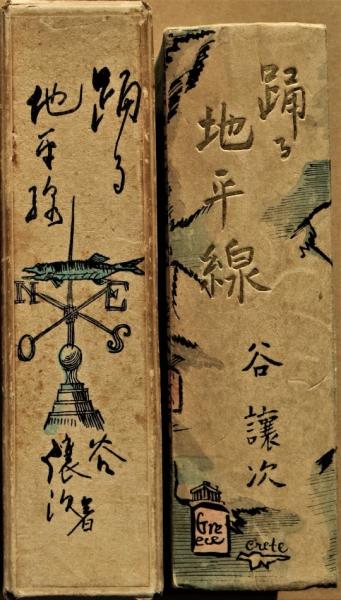 踊る
地平線
N E
O S
谷
讓次著
踊る
地平線
谷讓次
Gre
ece
crete